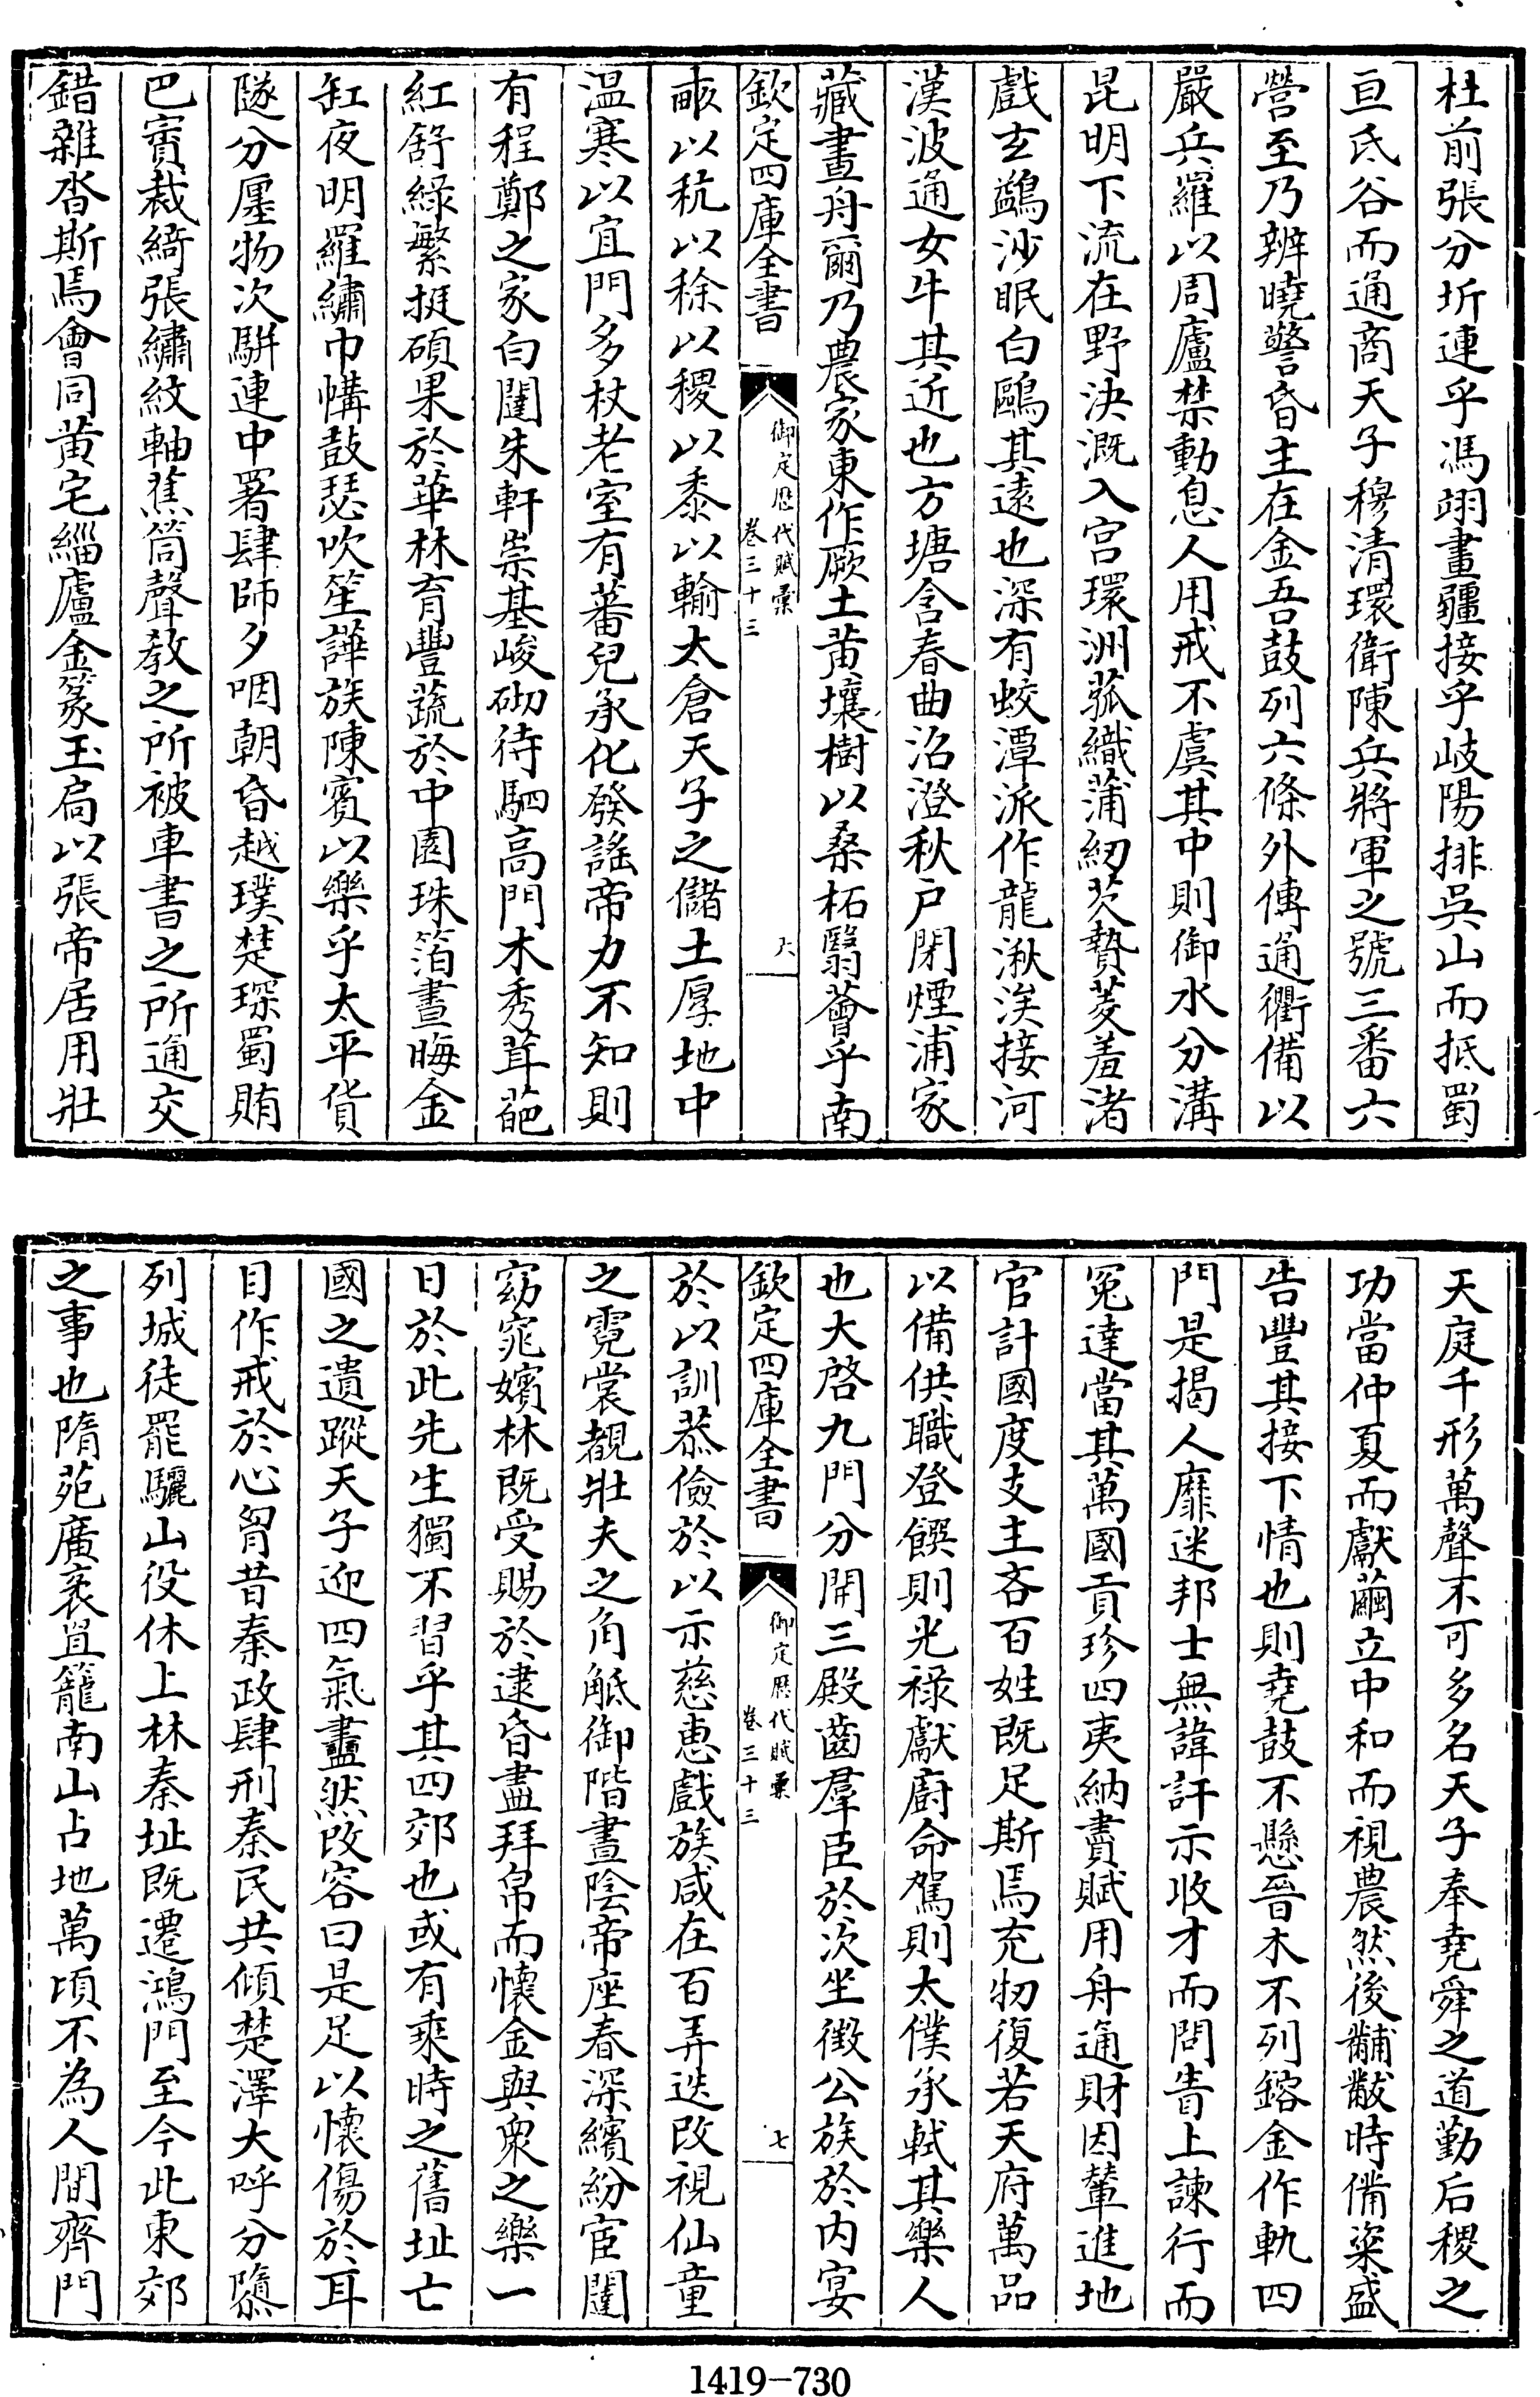 杜前張分圻連乎馮翊畫疆接乎岐陽排吳山而抵蜀
亘氐谷而通商天子穆清環衛陳兵將軍之號三番六
營至乃辨曉警昏主在金吾鼓列六條外傳通衢備以
嚴兵羅以周廬禁動息人用戒不虞其中則御水分溝
昆明下流在野決溉入宫環洲菰織蒲紉芡贄菱羞渚
戲玄鷁沙眠白鷗其遠也深有蛟潭派作龍湫涘接河
漢波通女牛其近也方塘含春曲沼澄秋户閉煙浦家
藏畫舟爾乃農家東作厥土黄壤樹以桑柘翳薈乎南
欽定四庫全書
御定歷代賦彙
卷三十三
六
畝以秔以稌以稷以黍以輸太倉天子之儲土厚地中
温寒以宜門多杖老室有蕃兒承化發謡帝力不知則
有程鄭之家白闥朱軒崇基峻砌待駟高門木秀茸葩
紅舒緑繁挺碩果於華林育豐蔬於中園珠箔晝晦金
缸夜明羅繡巾幬鼓瑟吹笙譁族陳賓以樂乎太平貨
隧分廛物次駢連中署肆師夕咽朝昏越璞楚琛蜀賄
巴賨裁綺張繡紋軸蕉筒聲教之所被車書之所通交
錯雜沓斯焉會同黄宅緇廬金篆玉扃以張帝居用壯
天庭千形萬聲不可多名天子奉堯舜之道勤后稷之
功當仲夏而獻繭立中和而視農然後黼黻時備粢盛
告豐其接下情也則堯鼓不懸晉木不列鎔金作軌四
門是揭人靡迷邦士無諱訐示收才而問眚上諫行而
冤達當其萬國貢珍四夷納賮賦用舟通財因輦進地
官計國度支主吝百姓既足斯焉充牣復若天府萬品
以備供職登饌則光禄獻廚命駕則太僕承軾其樂人
也大啓九門分開三殿齒羣臣於次坐徵公族於内宴
欽定四庫全書
御定歷代賦彙
卷三十三
七
於以訓恭儉於以示慈惠戲族咸在百弄迭改視仙童
之霓裳覩壯夫之角觝御階晝陰帝座春深繽紛宦闥
窈窕嬪林既受賜於逮昏盡拜帛而懷金與衆之樂一
日於此先生獨不習乎其四郊也或有乘時之舊址亡
國之遺蹤天子迎四氣盡然改容曰是足以懷傷於耳
目作戒於心胷昔秦政肆刑秦民共傾楚澤大呼分隳
列城徒罷驪山役休上林秦址既遷鴻門至今此東郊
之事也隋苑廣袤罝籠南山占地萬頃不為人間齊門
1419-730